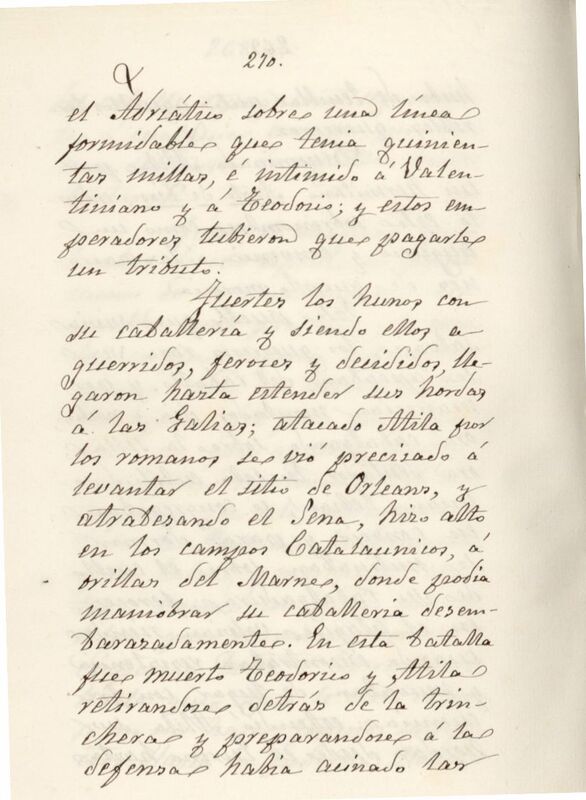 270.
el Adriático sobre una línea
formidable que tenia quinien-
tas millas, é intimido á Valen-
tiniano y á Teodosio; y estos em
peradores tubieron que pagarle
un tributo.
Fuertes los hunos con
su caballería y siendo ellos a
guerridos, feroces y decididos, lle-
garon hasta estender sus hordas
á las Galias; atacado Atila por
los romanos se vió precisado á
levantar el sitio de Orleans, y
atrabesando el Sena, hizo alto
en los campos Catalaunicos, á
orillas del Marne, donde podia
maniobrar su caballeria desem-
barazadamente. En esta batalla
fue muerto Teodorico y Atila
retirandose detrás de la trin-
chera y preparandose á la
defensa habia acinado las